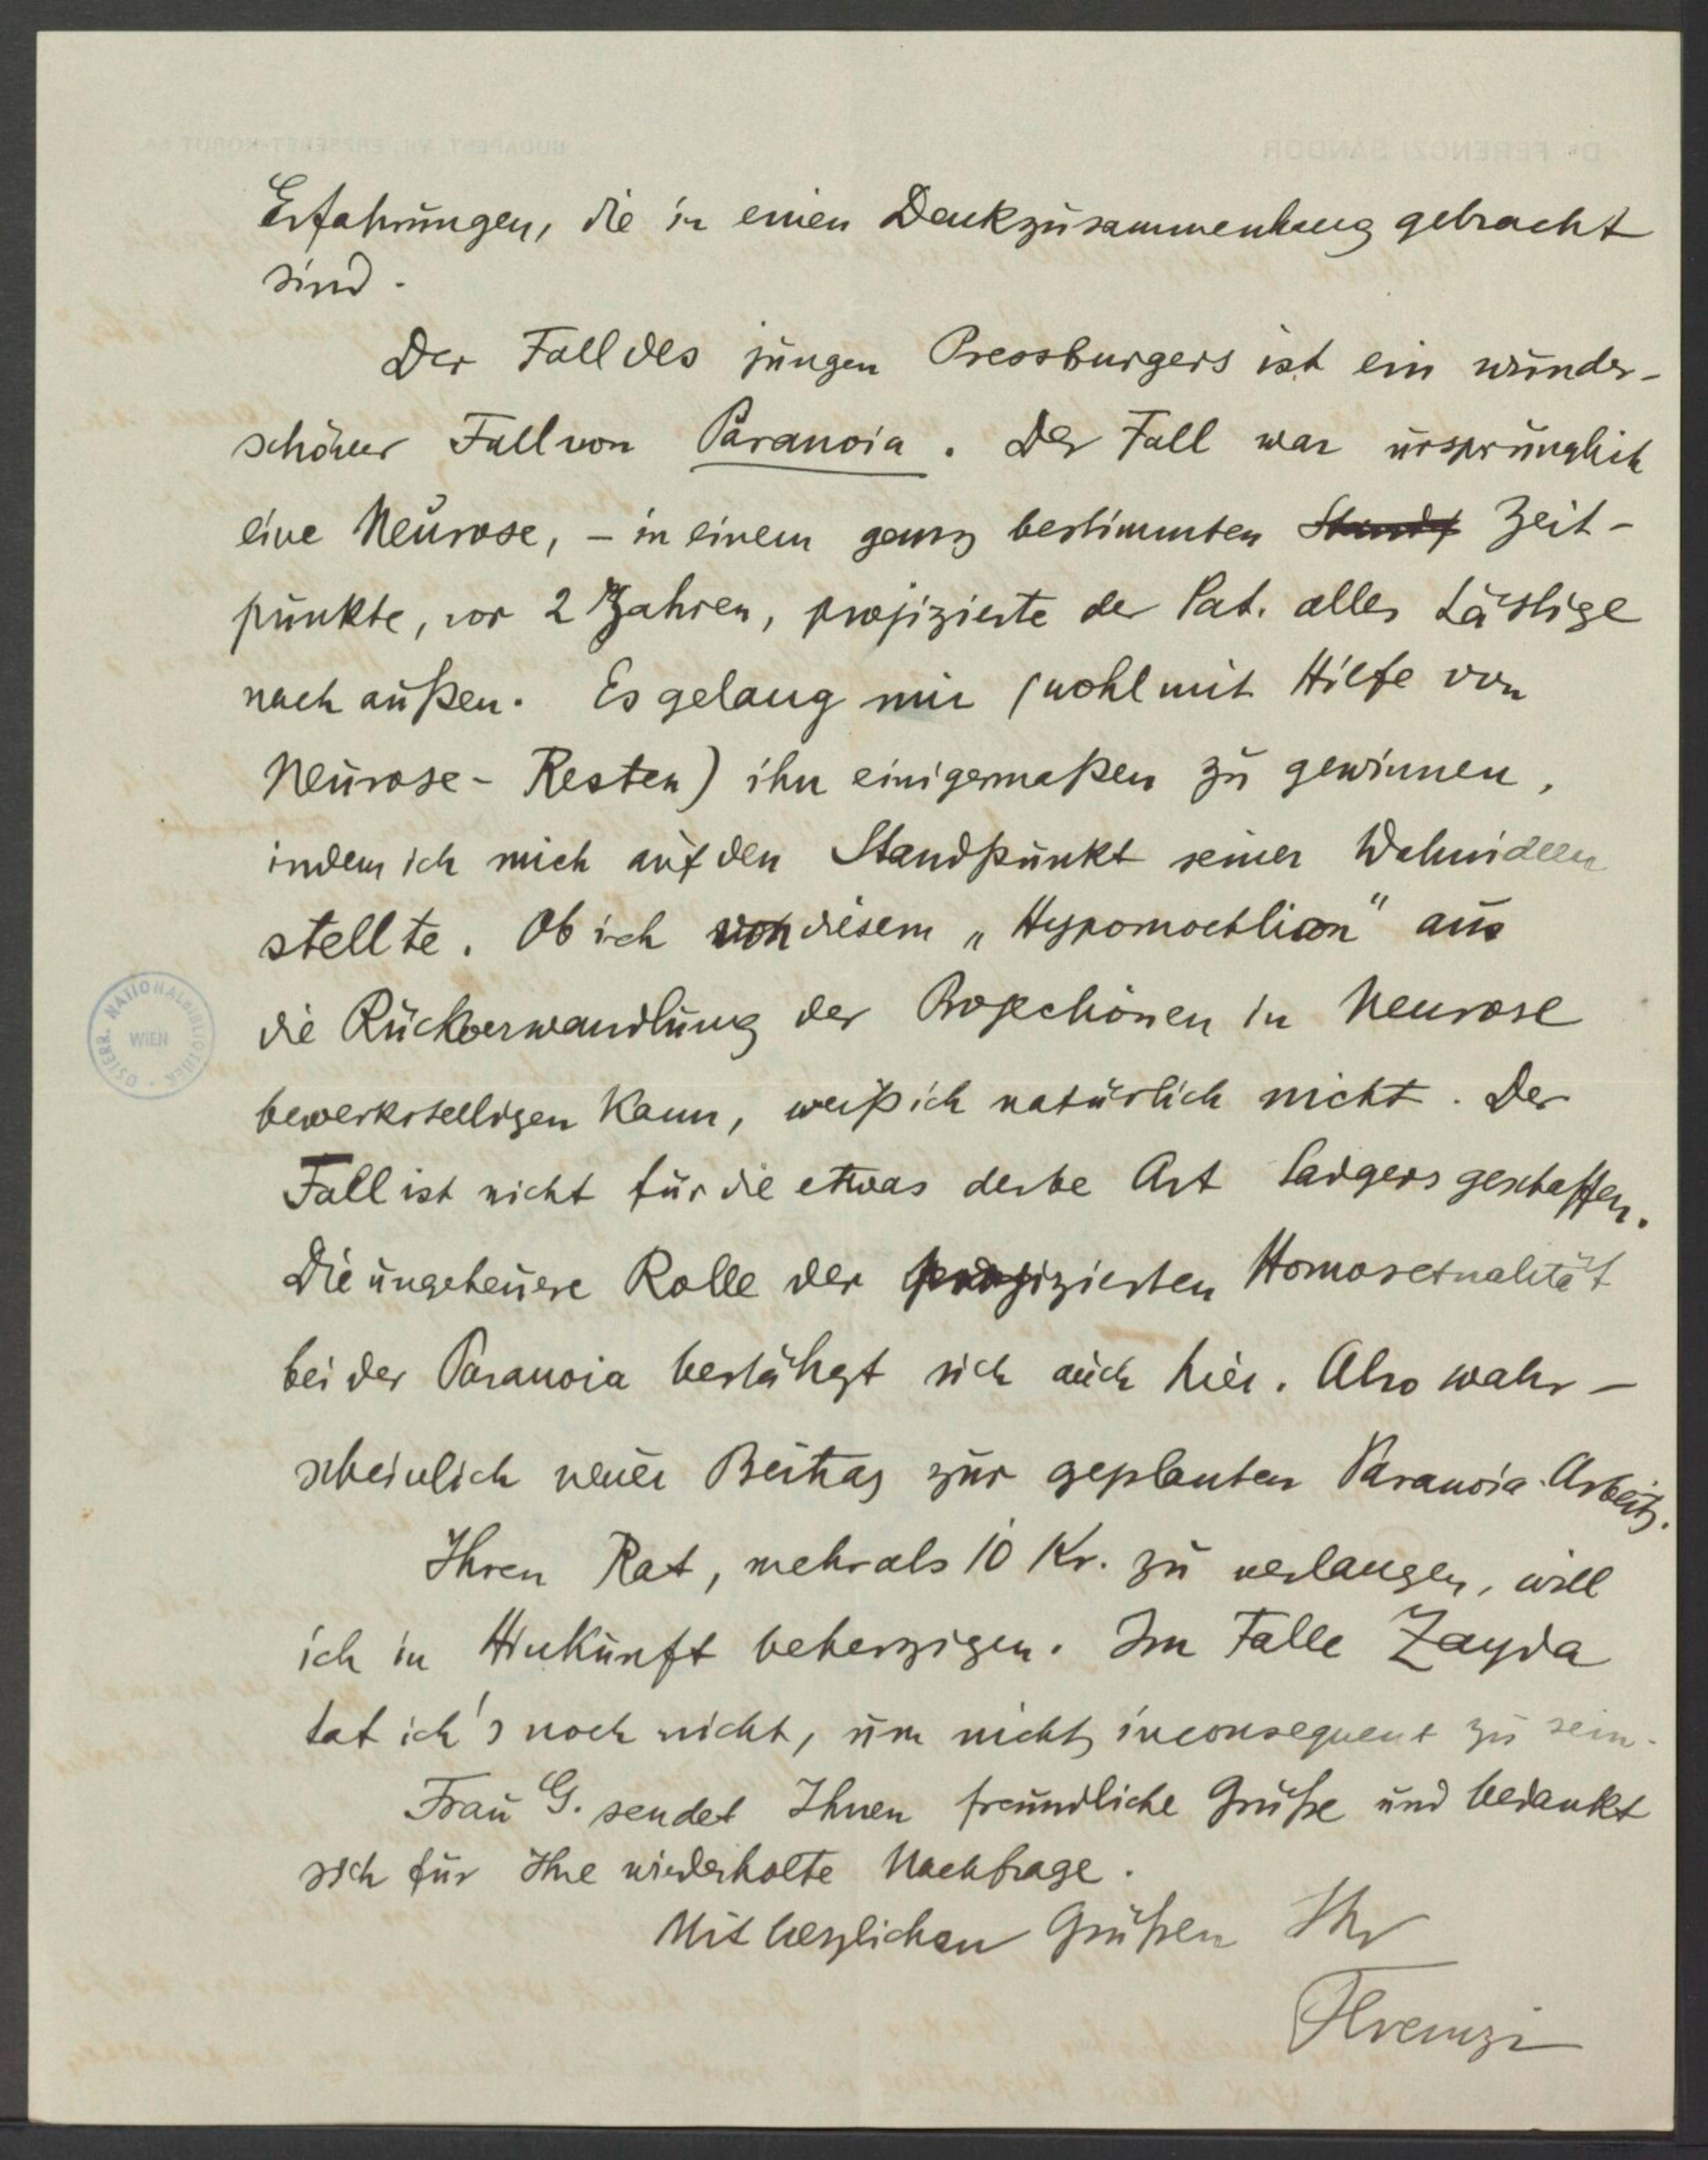 Erfahrungen, die in einen Denkzusammenhang gebracht
sind.
Der Fall des jungen Pressburgers ist ein wunder-
schöner Fall von Paranoia. Der Fall war ursprünglich
eine Neurose, – in einem ganz bestimmten Zeit-
punkte, vor 2 Jahren, projizierte der Pat. alles Lästige
nach außen. Es gelang mir (wohl mit Hilfe von
Neurose-Resten) ihn einigermaßen zu gewinnen,
indem ich mich auf den Standpunkt seiner Wahnideen
stellte. Ob ich von diesem „Hypomochlion" aus
die Rückverwandlung der Projectionen in Neurose
bewerkstelligen kann, weiß ich natürlich nicht. Der
Fall ist nicht für die etwas derbe Art Sadgers geschaffen.
Die ungeheuere Rolle der projizierten Homosexualität
bei der Paranoia bestätigt sich auch hier. Also wahr-
scheinlich neuer Beitrag zur geplanten Paranoia-Arbeit.
Ihren Rat, mehr als 10 Kr. zu verlangen, will
ich in Hinkunft beherzigen. Im Falle Zayda
tat ich's noch nicht, um nicht inconsequent zu sein.
Frau G. sendet Ihnen freundliche Grüße und bedankt
sich für Ihre wiederholte Nachfrage.
Mit herzlichen Grüßen Ihr
Ferenczi
ÖSTERR. NATIONALBIBLIOTHEK WIEN